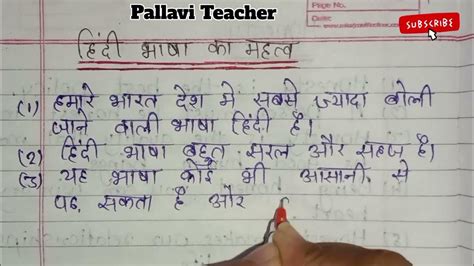 Pallavi Teacher
Page No.
Date:
SUBSCRIBE
हिंदी भाषा का महत्व
(1) हमारे भारत देश मे सबसे ज्यादा बोली
जाने वाली भाषा हिंदी है।
(2) हिंदी भाषा बहुत सरल और सहज है।
(3) यह भाषा कोई भी आसानी से
पढ़ सकता है और